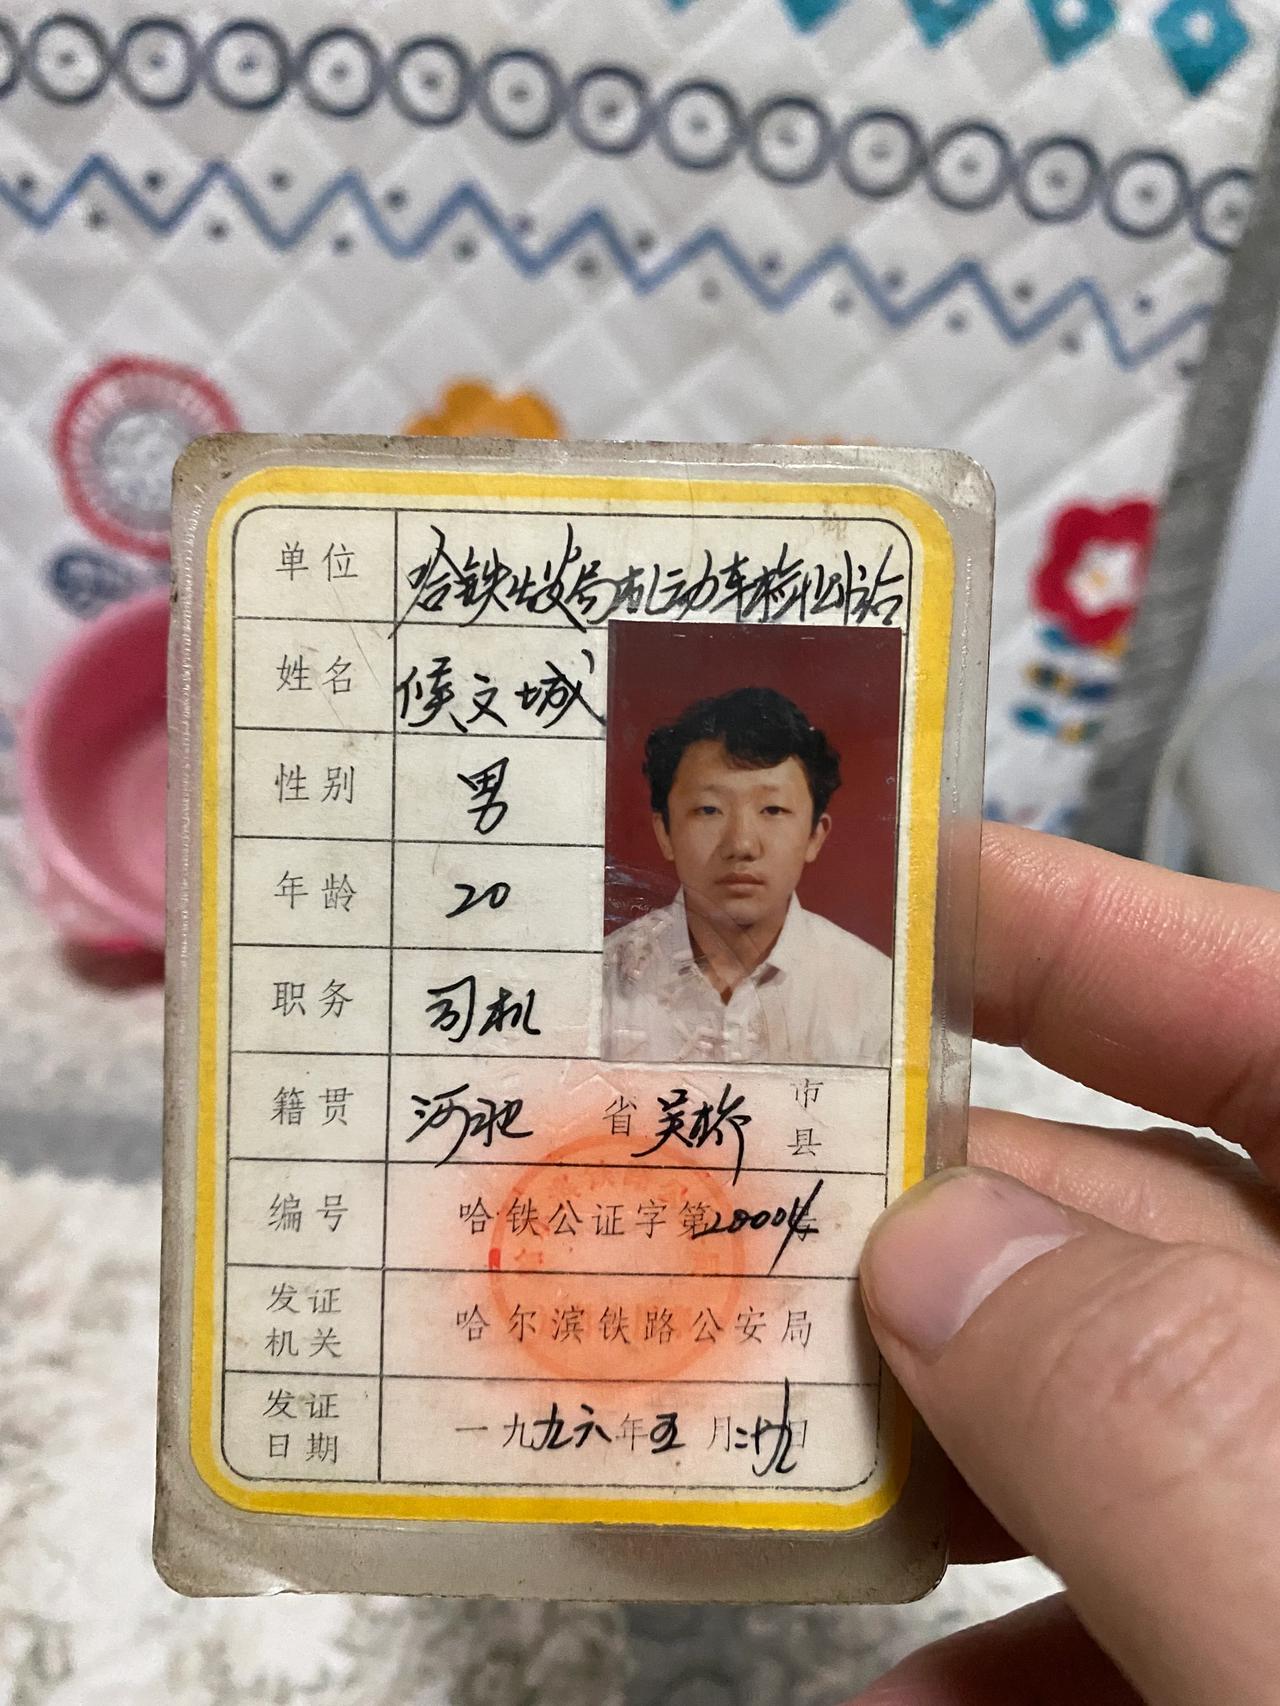 单位 哈铁公安局机动车检测站
姓名 侯文城
性别 男
年龄 20
职务 司机
籍贯 河北 省 吴桥 市县
编号 哈铁公证字第20004号
发证机关 哈尔滨铁路公安局
发证日期 一九九六年五月二十九日